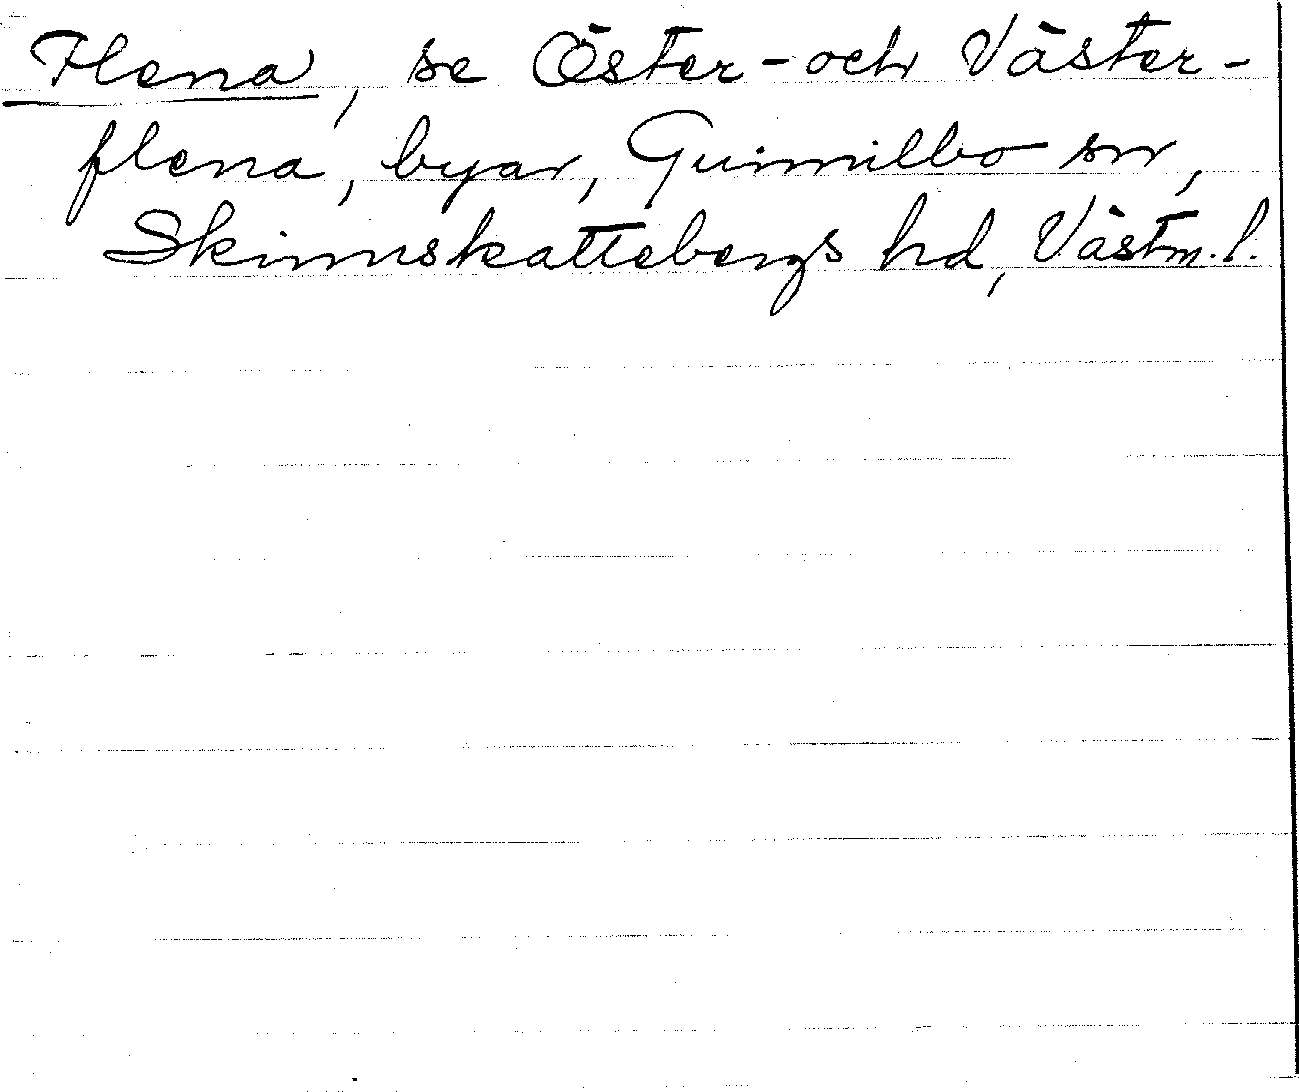 Flena, se Öster- och Väster-
flena, byar, Gunnilbo sn,
Skinnskattebergs hd, Västm. l.